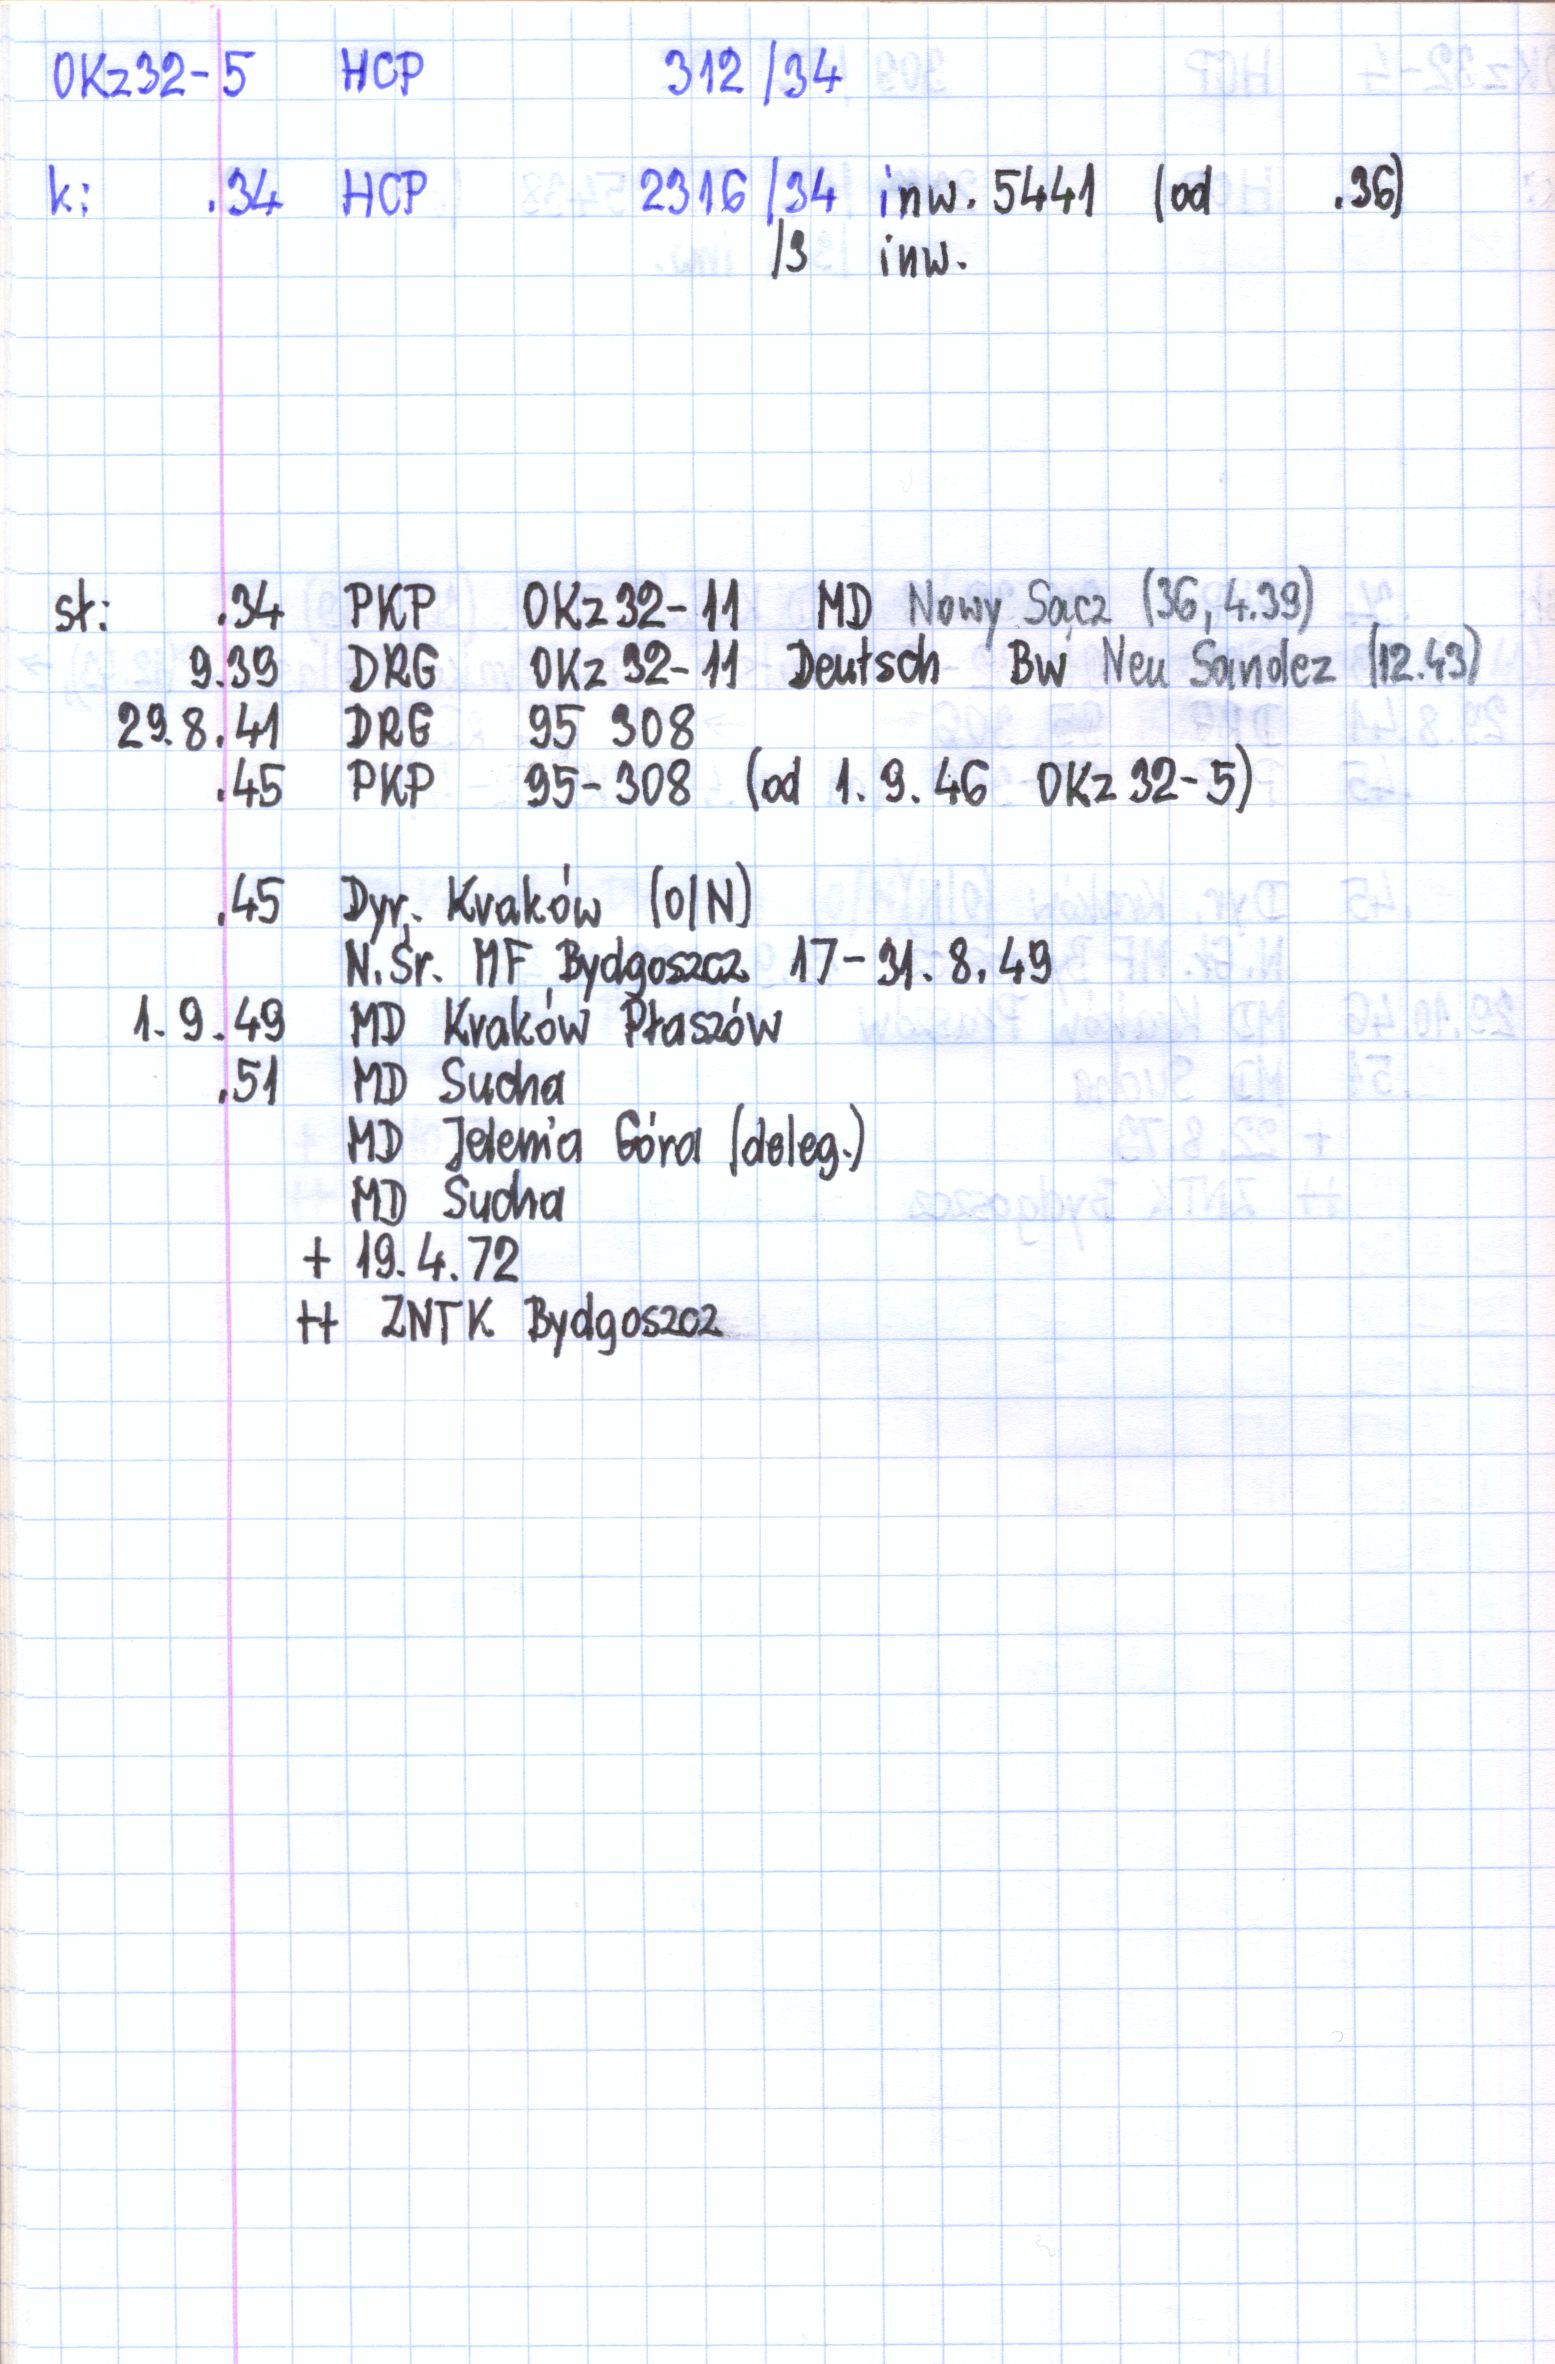 OKz32-5 HCP 312/34
k: .34 HCP 2316/34 inw. 5441 (od .36)
/3 inw.
st: .34 PKP OKz32-11 MD Nowy Sącz (36, 4.39)
9.39 DRG OKz32-11 Deutsch Bw Neu Sandez (12.43)
29.8.41 DRG 95 308
.45 PKP 95-308 (od 1.9.46 OKz32-5)
.45 Dyr. Kraków (O/N)
N.Śr. MF Bydgoszcz 17-31.8.49
1.9.49 MD Kraków Płaszów
.51 MD Sucha
MD Jelenia Góra (deleg.)
MD Sucha
+ 19.4.72
++ ZNTK Bydgoszcz